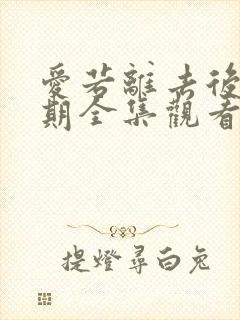 愛若離去後
期全集觀看
提燈尋白兔